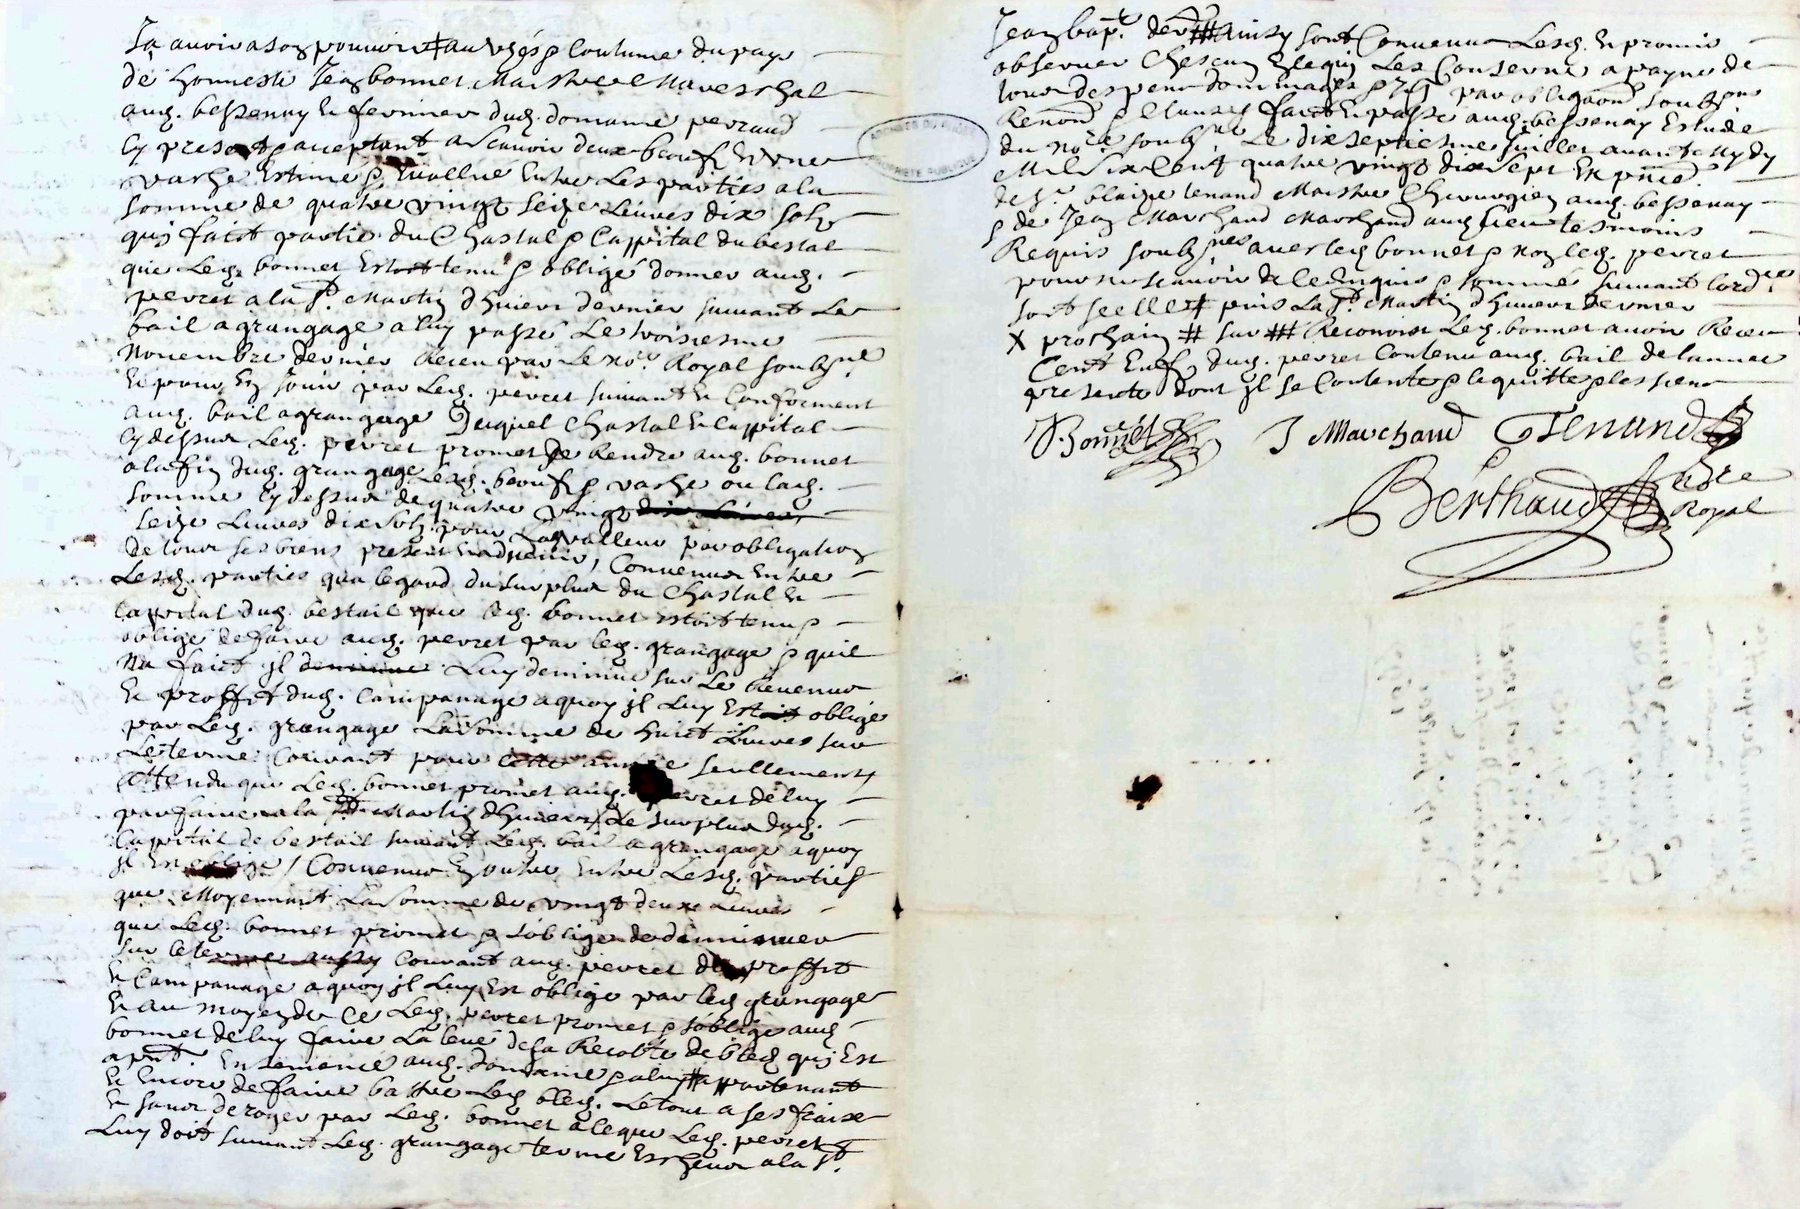 Ja avoir a son pouvoir # au usés & Coutume du pays
de honneste Jean bonnet Maistre Mareschal
aud. bessenay & fermier dud. domaine perraud
Cy present & acceptant a Scavoir deux boeufs & une
vashe Estimé & Evallué Entre Les parties a la
Somme de quatre vingt Seize Livres dix Solz
quj faict partie du Chastal & Cappital du bestal
que Led. bonnet Estoit tenu & obligé donner aud.
pevret a la St. Martin dhiver dernier suivant Le
bail a grangage a luy passé Le troisiesme
Novembre dernier Receu par Le Nore. Royal soubzné.
Et pour En Jouir par Led. pevret suivant & Conforment
aud. bail a grangage Duquel Chastal & Cappital
Cy dessus Led. pevret promet se Rendre aud. bonnet
a la fin dud. grangage Lesd. boeufs & vashe ou lad.
Somme Cy dessus de quatre vingt dix Livres
Seize Livres dix solz pour La valleur par obligation
de tous ses biens present & advenir, Convenus Entre
Lesd. parties qua legard du surplus du Chastal &
Cappital dud. bestail que led. bonnet Estoit tenu &
obligé de faire aud. pevret par led. grangage & quil
Na faict jl Luy deminue sur Le Revenus
Et proffit dud. Campanage a quoy jl Luy Estoit obligé
par Led. grangage La Somme de huict Livres sur
Le terme Courant pour Cette année seullement
Attendu que Led. bonnet promet aud. pevret de luy
parfaire a la St Martin dhiver Le surplus dud.
Cappital de bestail suivant Led. bail a grangage a quoy
jl Est obligé / Convenus En outre Entre Lesd. parties
que Moyennant La Somme de vingt deux Livres
que Led. bonnet promet & soblige de deminuer
sur le terme Courant aud. pevret du proffit
& Campanage a quoy jl Luy Est obligé par led grangage
Et au moyen de Ce Led. pevret promet & soblige aud
bonnet de luy faire La levé de sa Recolte de bled quj Est
a pnt. En semence aud. domaine & a luy appartenant
Et Encore de faire battre Led bled. Le tout a ses fraix
Et sans deroger par Led. bonnet a Ce que Led. pevret
Luy doit suivant Led. grangage terme Escheus a la St.
Jean bapt. der. # Ainsy sont Convenus Lesd. & promis
observer Chescun En Ce quj Les Conserne a payne de
tous despens dommages & par obligaon. soubzon
Renoñ & Clauses faict & passé aud. bessenay Estude
du nore soubzné Le dix septiesme juillet avant Mydy
Mil Six Cent quatre vingt dix sept En pñce
de Sr. blaise tenand Maistre Chirurgien aud. bessenay
& de Jean Marchand Marchand aud lieu tesmoins
Requis soubznés avec led bonnet & Non led. pevret
pour ne scavoir de Ce Enquis & sommé suivant lordce.
soit scellé # puis La St. Martin dhiver dernier
X prochain # sur ### Reconoist Led. bonnet avoir Receu
Cent Eufs dud. pevret Contenu aud. bail de lannée
presente dont jl se Contente & le quitte & les siens
J. Bonnet J Marchand Tenand
Berthaud nore
Royal
ARCHIVES DU RHÔNE
PROPRIÉTÉ PUBLIQUE